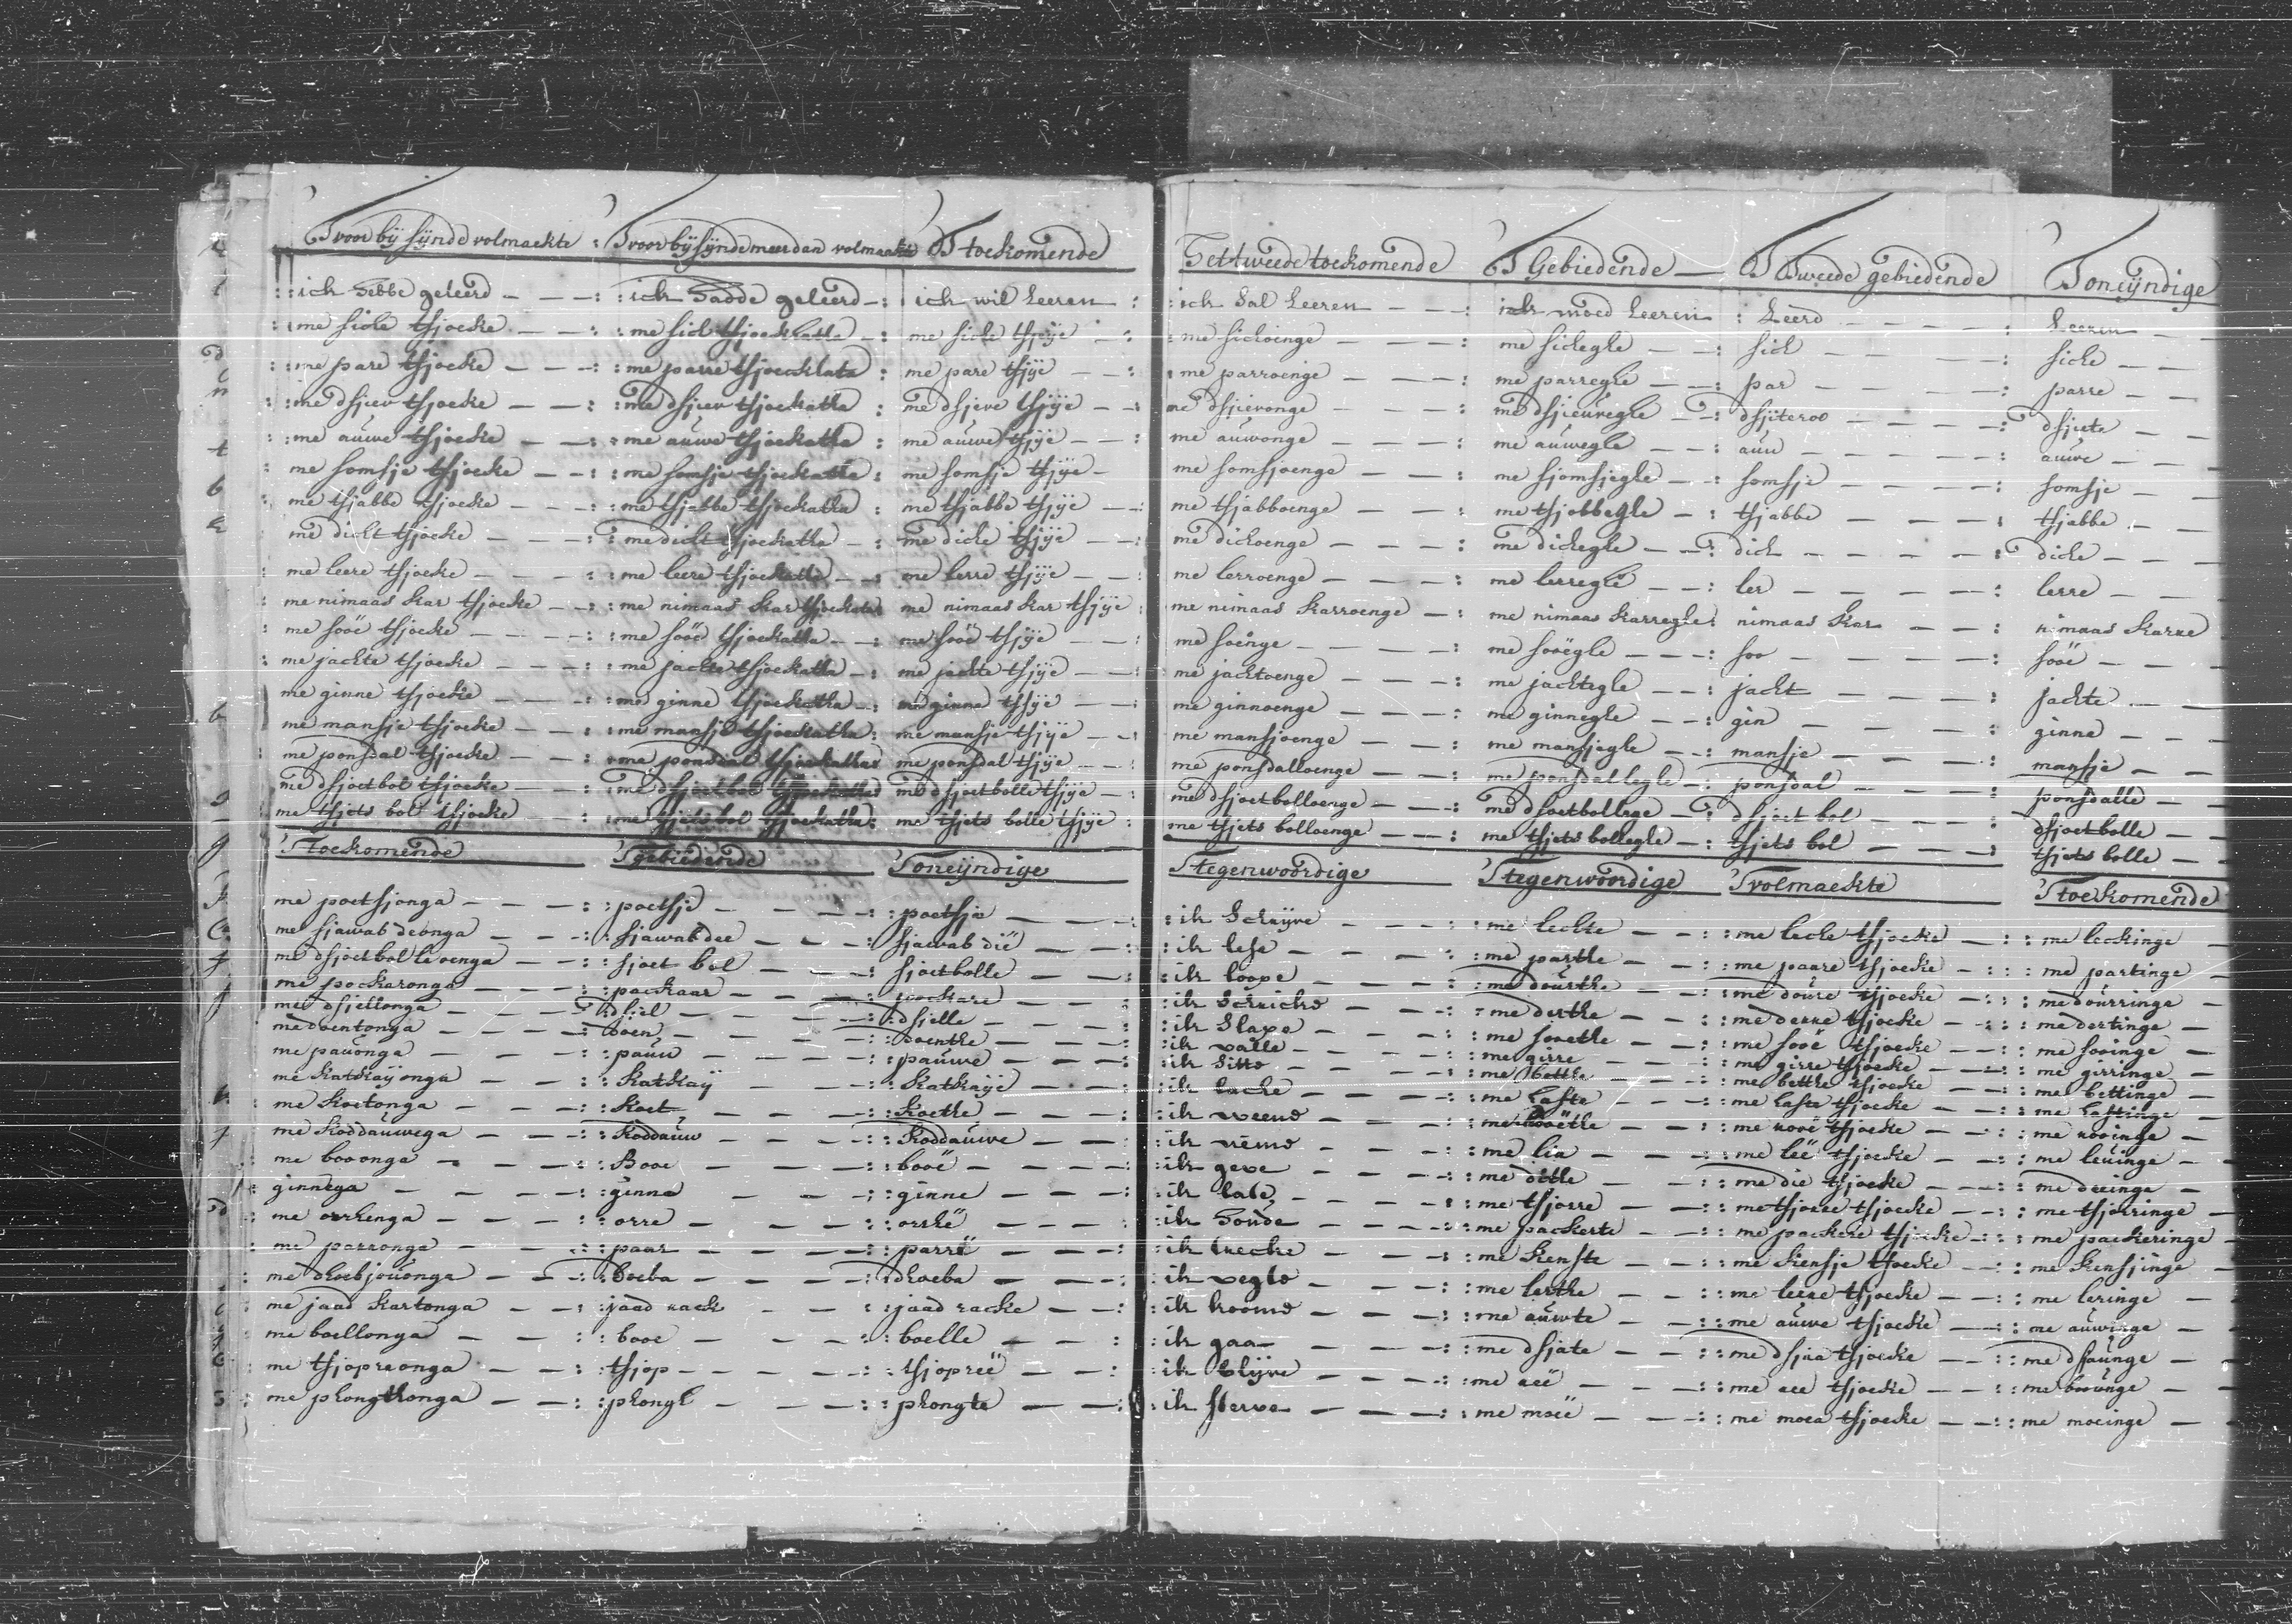 T voor bÿ sÿnde volmaekte : T voor bÿ sÿnde meer dan volmaekte T toekomende
: : ich hebbe geleerd — — — : : ich hadde geleerd — : ich wil Leeren :
: : me sicke tsjoecke — — : : me sick tsjoeckatha — : me sicke tsjÿe — :
: : me pare tsjoecke — — — : : me parre tsjoecklata : me pare tsjÿe — — :
: : me dsjiev tsjoecke — — : : me dsjiev tsjoeckatha : me dsjeve tsjÿe — — :
: : me auwe tsjoecke — — : : me auwe tsjoeckatha : me auwe tsjÿe — — :
: me somsje tsjoecke — — : : me somsje tsjoeckatha : me somsje tsjÿe —
: me tsjabbe tsjoecke — — — : : me tsjabbe tsjoeckatha : me tsjabbe tsjÿe — — :
: me dickt tsjoecke — — — : : me dickt tsjoeckatha — : me dicke tsjÿe — — :
: me leere tsjoecke — — — : : me leere tsjoeckatha — — : me lerre tsjÿe — — :
: me nimaas kar tsjoecke — — : : me nimaas kar tsjoeckatha me nimaas kar tsjÿe :
: me sooë tsjoecke — — — — : : me sooë tsjoeckatha — — : me sooë tsjÿe — — :
: me jackte tsjoecke — — — : : me jackte tsjoeckatha — : me jackte tsjÿe — — :
me ginne tsjoecke — — — — : : me ginne tsjoeckatha — : me ginne tsjÿe — — :
me mansje tsjoecke — — — : : me mansje tsjoeckatha : me mansje tsjÿe — — :
: me ponsdal tsjoecke — — : : me ponsdal tsjoeckatha me ponsdal tsjÿe — — :
me dsjoetbol tsjoecke — — : : me dsjoetbol tsjoeckatha me dsjoetbolle tsjÿe — :
me tsjets bol tsjoecke — — : : me tsjets bol tsjoeckatha : me tsjets bolle tsjÿe :
T toekomende T gebiedende T oneÿndige
me poetsjonga — — — : : poetsje — — — — : : poetsje — — — :
me sjawab deonga — — — : : sjawab dee — — — : sjawab dië — — :
me dsjoetbolleoenga — — : : sjoet bol — — — : sjoetbolle — — :
me pockaronga — — — : : pockaar — — — : pockare — — :
me dsjellonga — — — : dsjel — — — — : : dsjelle — — — :
me doentonga — — — — : doen — — — — : doenthe — — — :
me pauonga — — — : : pauw — — — — : : pauwe — — — :
me katkaÿonga — — : : katkaÿ — — — : : katkaÿe — — — :
: me koetonga — — — : : koet — — — — : : koethe — — — :
me koddauwega — — — : : koddauw — — — : : koddauwe — — :
: me booonga — — — — : : Booe — — — — : : booë — — — — :
: ginnega — — — — : : ginne — — — : : ginne — — — :
: me orrhenga — — — : : orre — — — — : : orrhë — — — :
: me parronga — — — : : paar — — — — : : parrë — — — :
: me dhoebjouonga — — — : : boeba — — — — : : dhoeba — — — :
: me jaad kartonga — — : : jaad rack — — : : jaad racke — — :
: me boellonga — — — : : booe — — — : : boelle — — — :
: me tsjopreonga — — : : tsjop — — — — : : tsjopreë — — :
: me phongthonga — — : : phongt — — — : : phongte — — :
Tet tweede toekomende T Gebiedende — T Tweede gebiedende T oneÿndige
: ich sal Leeren — — — : ich moed Leeren : Leerd — — — — : Leeren —
: me sickoinge — — — : me sickegle — — : sick — — — — : sicke — —
: me parroenge — — — : me parregle — — : par — — — — : parre — —
me dsjievonge — — — : me dsjieuvegle — — : dsjiteroe — — — — : dsjiete — —
me auwonge — — — : me auwegle — — : auw — — — — : auwe — —
me somsjoenge — — : me sjomsjegle — — : somsje — — — — : somsje — —
me tsjabboenge — — — : me tsjobbegle — : tsjabbe — — — : tsjabbe — —
me dickoenge — — — : me dickegle — — : dick — — — — : dicke — —
me lerroenge — — — : me lerregle — — : ler — — — — : lerre — —
me nimaas karroenge — : me nimaas karregle : nimaas kar — — : nimaas karre
me soënge — — — — : me soëgle — — — : soo — — — — : sooë — —
me jacktoenge — — — : me jacktegle — — : jackt — — — : jackte — —
me ginnoenge — — — : me ginnegle — — : gin — — — : ginne — —
me mansjoenge — — : me mansjegle — — : mansje — — — : mansje — —
me ponsdalloenge — — : me ponsdallegle — : ponsdal — — — : ponsdalle — —
me dsjoetbolloenge — — : me dsoetbollege — : dsjoet bol — — — : dsjoetbolle —
me tsjets bolloenge — — : me tsjets bollegle — : tsjets bol — — — : tsjets bolle —
T tegenwoordige T tegenwoordige T volmaekte T toekomende
: ik Schrÿve — — — : me leckte — — : : me lecke tsjoecke — : : me leckinge —
: ik lese — — — : me parthe — — : : me paare tsjoecke — : : : me partinge —
: ik loope — — — : me dourthe — — : me doure tsjoecke — : : me dourringe —
: ik Schricke — — — : me derthe — — : : me derre tsjoecke — : : me dertinge —
: ik Slape — — — : me soethe — — : me sooë tsjoecke — : : me sooinge —
: ik valle — — — : me girre — — : : me girre tsjoecke — : : me girringe —
: ik sitte — — — : me bettke — — : me bettke tsjoecke — : : me bettinge —
: ik lache — — — : me haste — — : me haste tsjoecke — : me hastinge —
: ik weene — — — : me rooëthe — — : me rooë tsjoecke — : me rooinge —
: ik neme — — — : me lia — — : : me leë tsjoecke — — : : me leuinge — —
: ik geve — — — : me ditle — — : me die tsjoecke — — : : me deeinga —
: ik late — — — : me tsjorre — — : me tsjoree tsjoecke — : : me tsjorringe —
: ik houde — — — : : me packerte — — : me packere tsjoecke — : : me packeringe —
: ik trecke — — — : me kenste — — : me kensje tsjoecke — : : me kensjinge —
: ik vegte — — — : me lerthe — — : : me leere tsjoecke — : : me leringe — —
: ik koome — — — : me auwte — — : : me auwe tsjoecke — : : me auwinge — —
: ik gaa — — — : me dsjate — — : : me dsjaa tsjoecke — : : me dsaunge — —
: ik blÿve — — — : : me reë — — : : me ree tsjoecke — — : : me boounge — —
: ik sterve — — — : : me moeë — — : : me moea tsjoecke — : : me moeinge — —